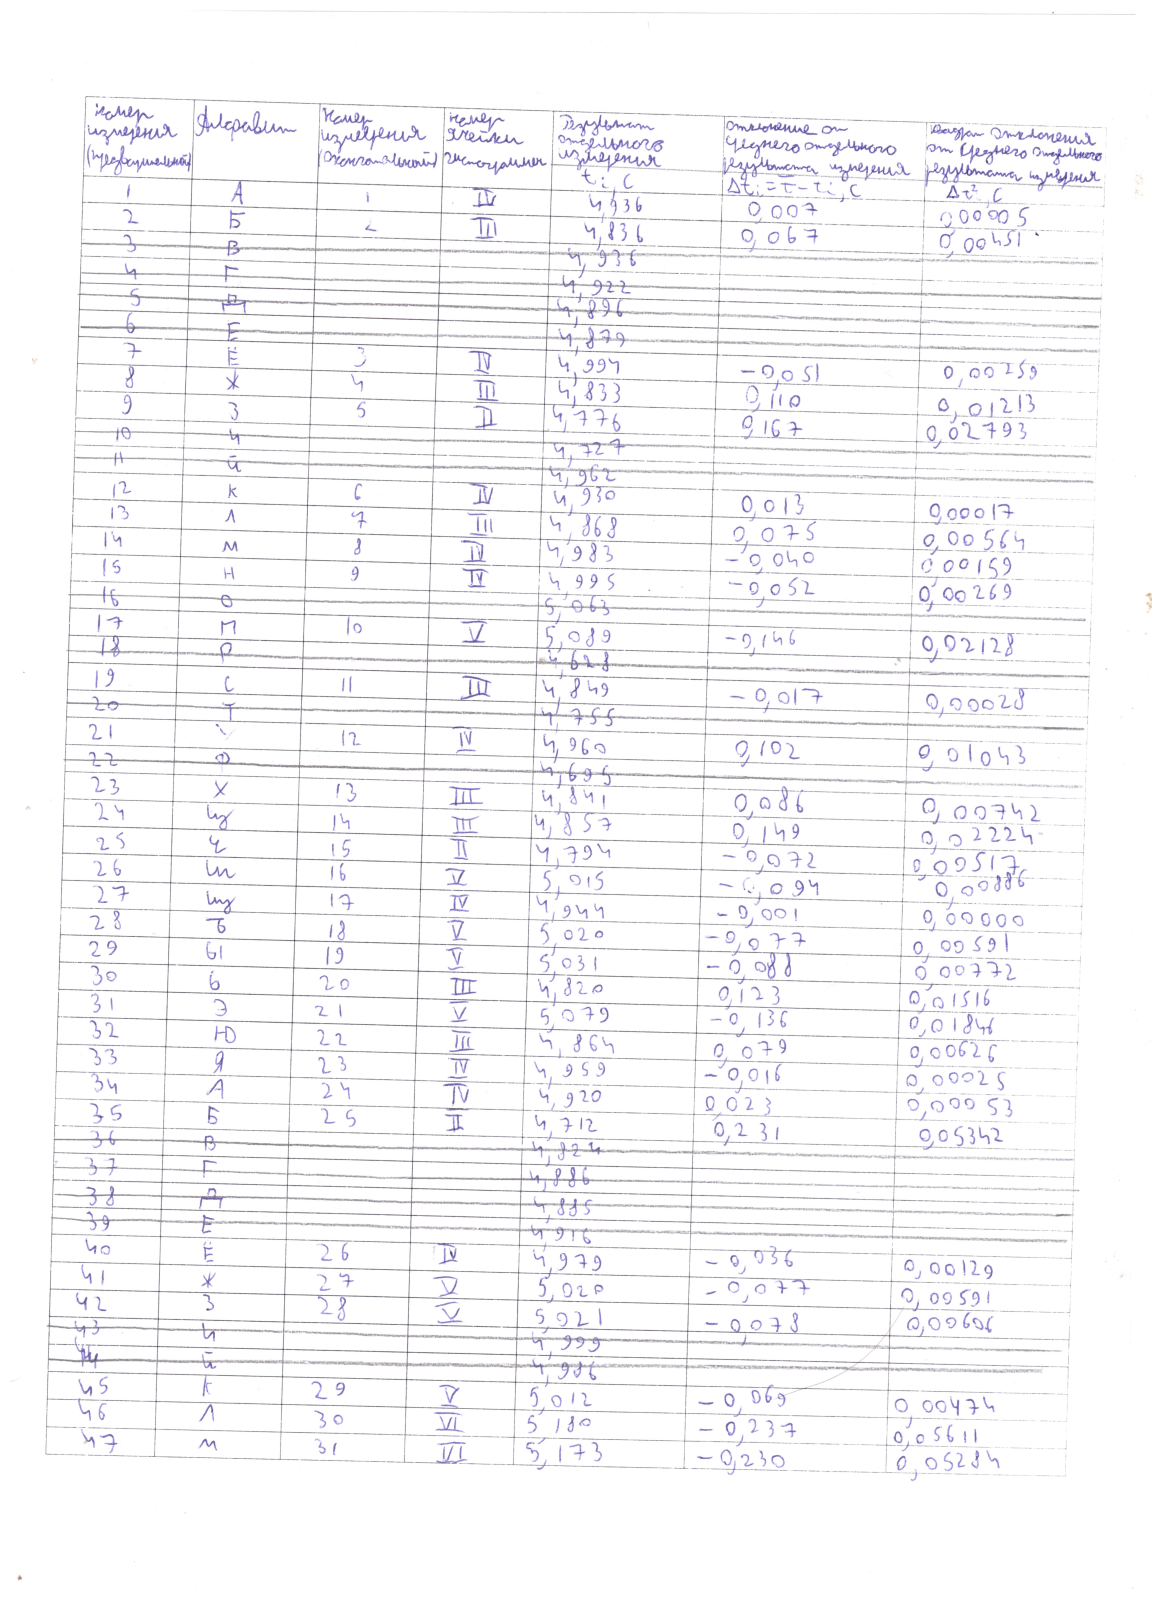 Номер измерения (предварительный) Алфавит Номер измерения (окончательный) Номер ячейки гистограммы Результат отдельного измерения tᵢ, с Отклонение от среднего отдельного результата измерения Δtᵢ = t̄ - tᵢ, с Квадрат отклонения от среднего отдельного результата измерения Δt², с
1 А 1 IV 4,936 0,007 0,00005
2 Б 2 III 4,836 0,067 0,00451
3 В 4,936
4 Г 4,922
5 Д 4,896
6 Е 4,879
7 Ё 3 IV 4,994 -0,051 0,00259
8 Ж 4 III 4,833 0,110 0,01213
9 З 5 II 4,776 0,167 0,02793
10 И 4,727
11 Й 4,962
12 К 6 IV 4,930 0,013 0,00017
13 Л 7 III 4,868 0,075 0,00564
14 М 8 IV 4,983 -0,040 0,00159
15 Н 9 IV 4,995 -0,052 0,00269
16 О 5,063
17 П 10 V 5,089 -0,146 0,02128
18 Р 4,628
19 С 11 III 4,849 -0,017 0,00028
20 Т 4,755
21 12 IV 4,960 0,102 0,01043
22 Ф 4,695
23 Х 13 III 4,841 0,086 0,00742
24 Ц 14 III 4,857 0,149 0,02224
25 Ч 15 II 4,794 -0,072 0,00517
26 Ш 16 V 5,015 -0,094 0,00886
27 Щ 17 IV 4,944 -0,001 0,00000
28 Ъ 18 V 5,020 -0,077 0,00591
29 Ы 19 V 5,031 -0,088 0,00772
30 Ь 20 III 4,820 0,123 0,01516
31 Э 21 V 5,079 -0,136 0,01846
32 Ю 22 III 4,864 0,079 0,00626
33 Я 23 IV 4,959 -0,016 0,00025
34 А 24 IV 4,920 0,023 0,00053
35 Б 25 II 4,712 0,231 0,05342
36 В 4,824
37 Г 4,886
38 Д 4,885
39 Е 4,916
40 Ё 26 IV 4,979 -0,036 0,00129
41 Ж 27 V 5,020 -0,077 0,00591
42 З 28 V 5,021 -0,078 0,00606
43 И 4,999
44 Й 4,986
45 К 29 V 5,012 -0,069 0,00474
46 Л 30 VI 5,180 -0,237 0,05611
47 М 31 VI 5,173 -0,230 0,05284